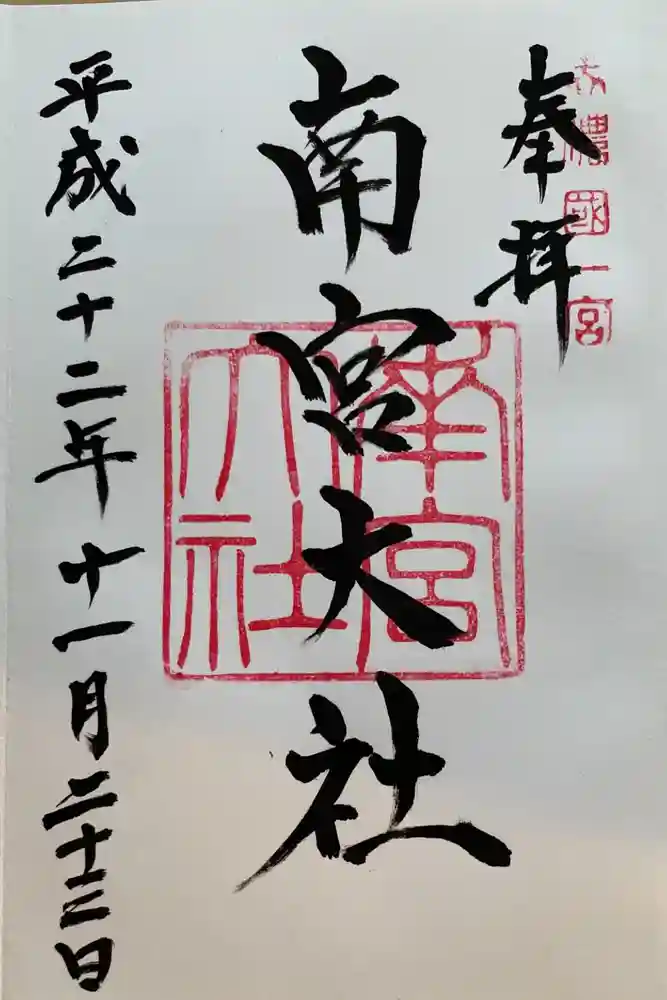 奉拝
美濃國一宮
南宮大社
南宮
大社
平成二十二年十一月二十三日